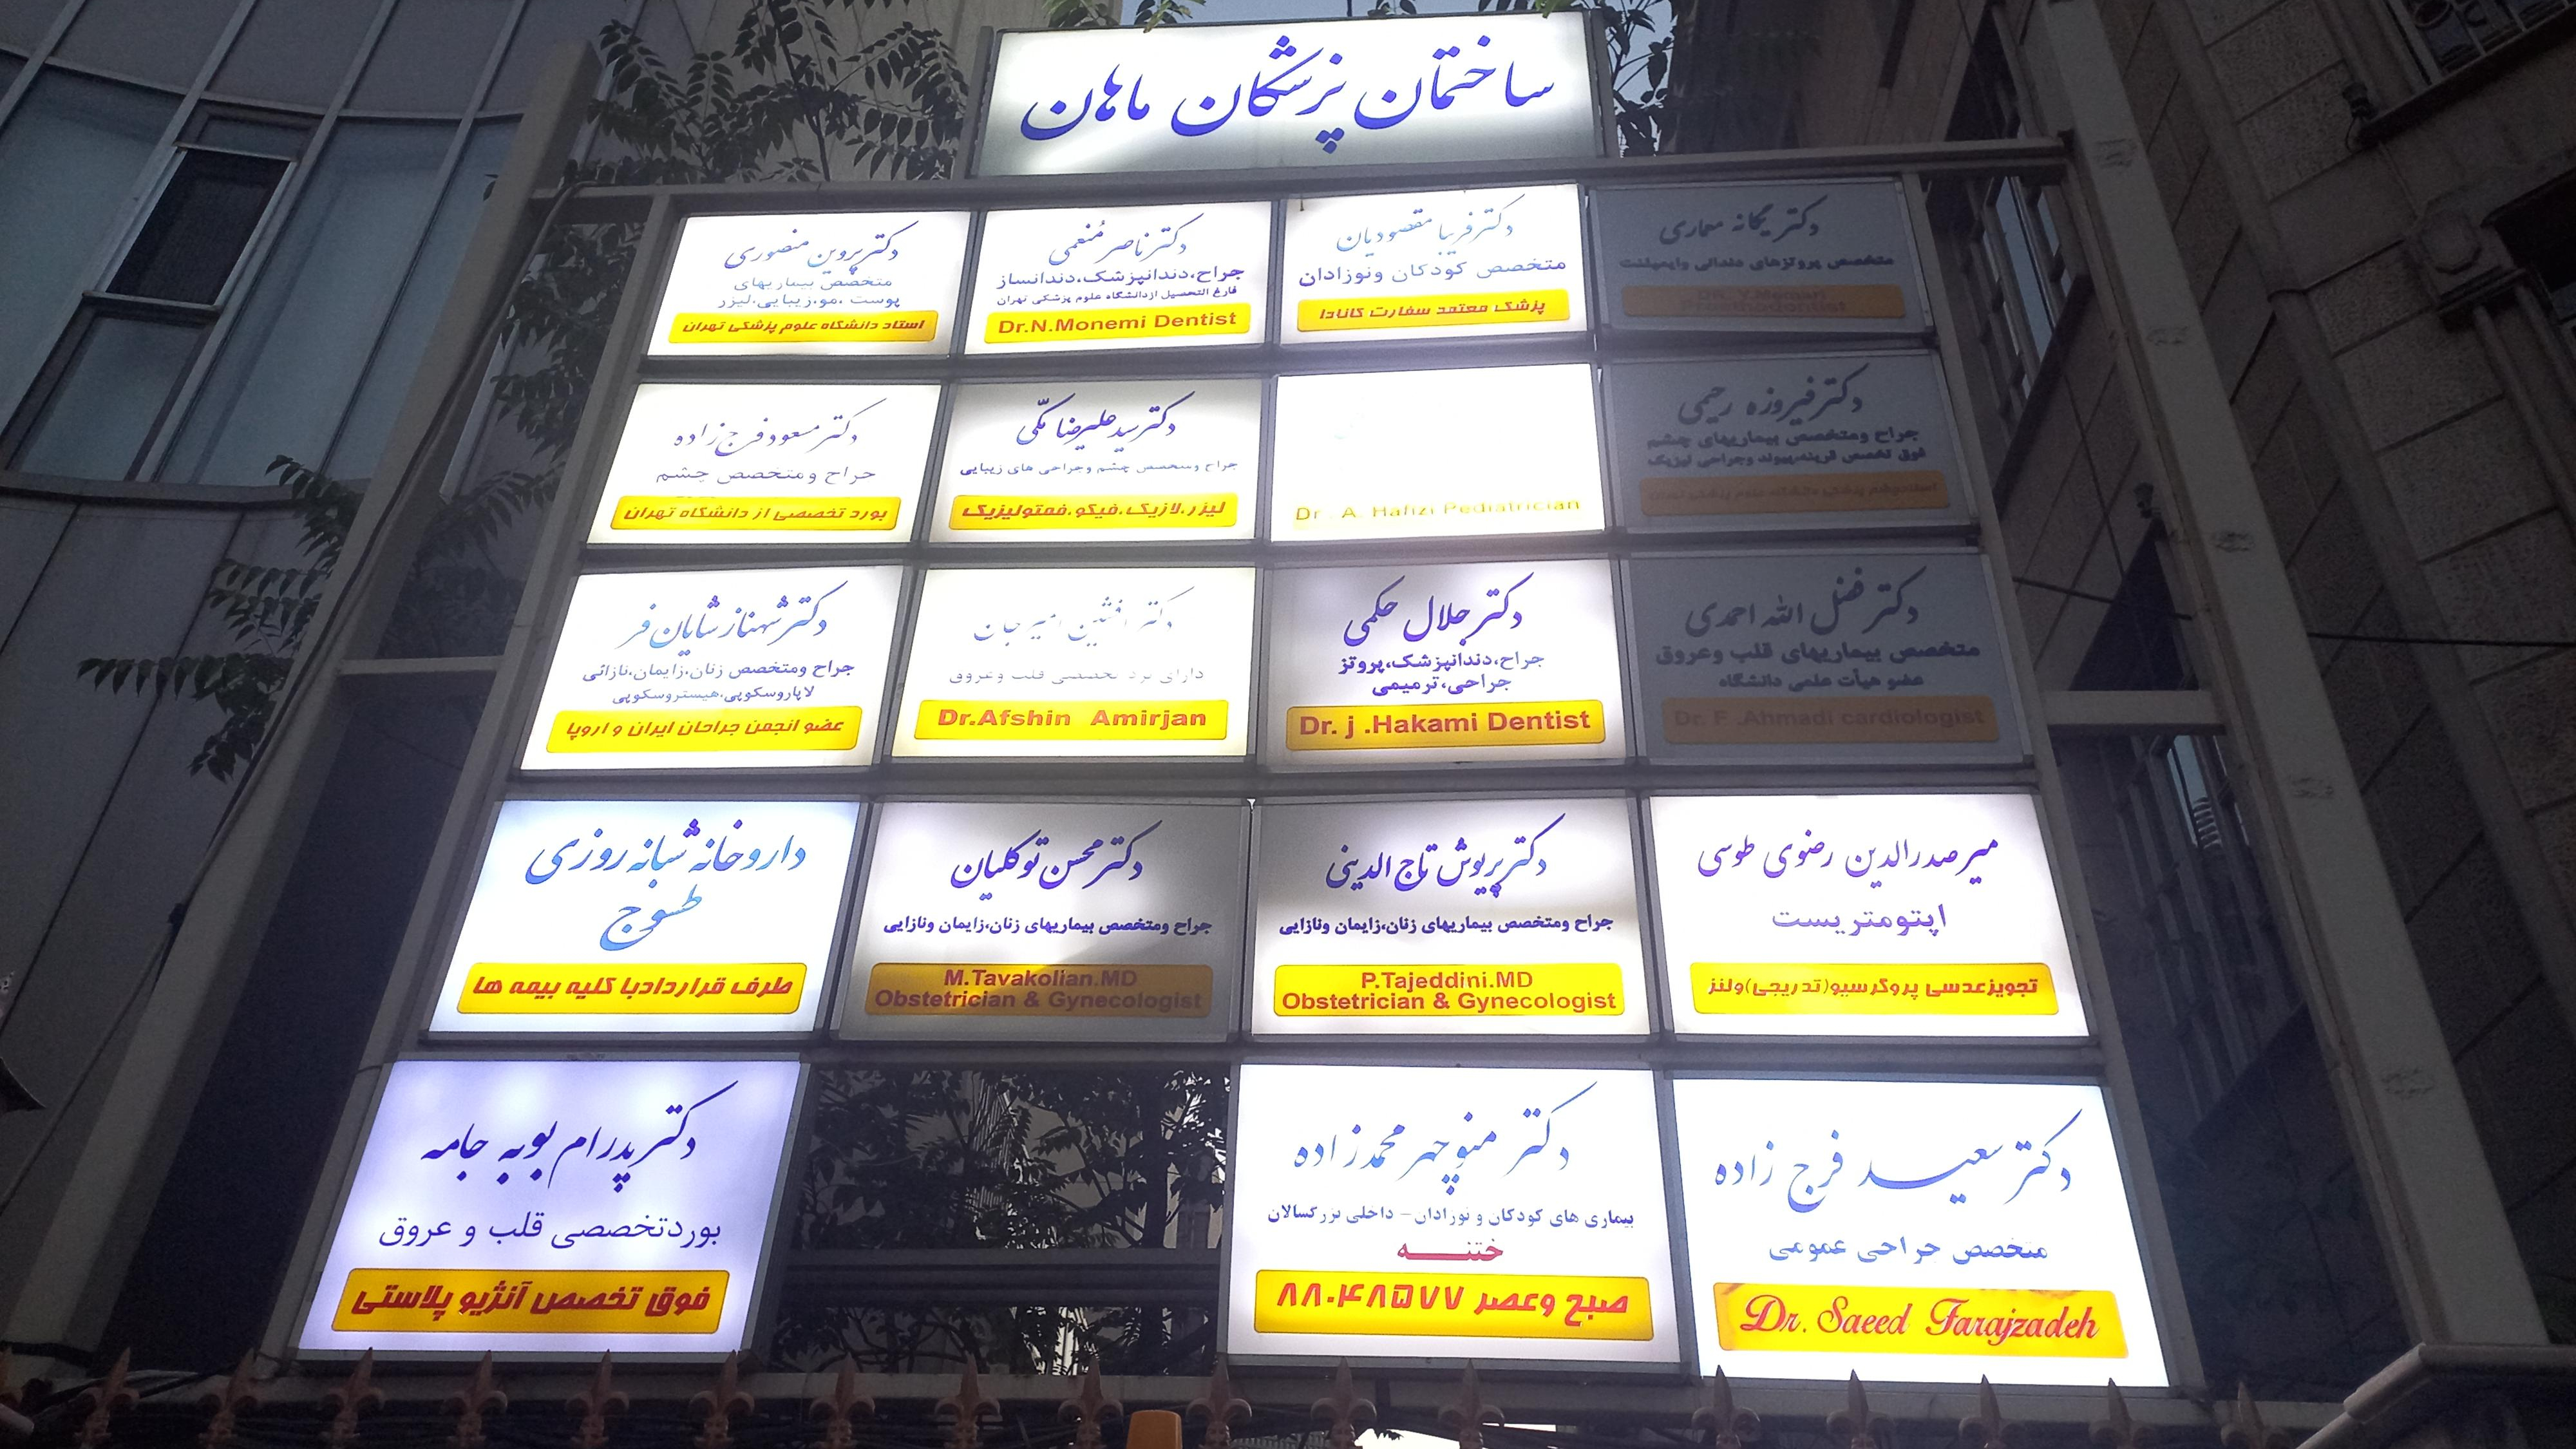 ساختمان پزشکان ماهان
دکتر یگانه معماری
متخصص پروتزهای دندانی وایمپلنت
دکتر فریبا مقصودیان
متخصص کودکان ونوزادان
پزشک معتمد سفارت کانادا
دکتر ناصر مُنعمی
جراح،دندانپزشک،دندانساز
فارغ التحصیل ازدانشگاه علوم پزشکی تهران
Dr.N.Monemi Dentist
دکتر پروین منصوری
متخصص بیماریهای
پوست ،مو،زیبایی،لیزر
استاد دانشگاه علوم پزشکی تهران
دکتر فیروزه رحیمی
جراح ومتخصص بیماریهای چشم
فوق تخصص قرنیه،پیوند وجراحی لیزیک
Dr. A. Hafizi Pediatrician
دکتر سید علیرضا مکّی
جراح ومتخصص چشم وجراحی های زیبایی
لیزر،لازیک،فیکو،فمتولیزیک
دکتر مسعود فرج زاده
جراح ومتخصص چشم
بورد تخصصی از دانشگاه تهران
دکتر فضل الله احمدی
متخصص بیماریهای قلب وعروق
عضو هیأت علمی دانشگاه
Dr. F .Ahmadi cardiologist
دکتر جلال حکمی
جراح،دندانپزشک،پروتز
جراحی،ترمیمی
Dr. j .Hakami Dentist
دکتر افشین امیرجان
دارای برد تخصصی قلب وعروق
Dr.Afshin Amirjan
دکتر شهناز شایان فر
جراح ومتخصص زنان،زایمان،نازائی
لاپاروسکوپی،هیستروسکوپی
عضو انجمن جراحان ایران و اروپا
میرصدرالدین رضوی طوسی
اپتومتریست
تجویزعدسی پروگرسیو(تدریجی)ولنز
دکتر پریوش تاج الدینی
جراح ومتخصص بیماریهای زنان،زایمان ونازایی
P.Tajeddini.MD
Obstetrician & Gynecologist
دکتر محسن توکلیان
جراح ومتخصص بیماریهای زنان،زایمان ونازایی
M.Tavakolian.MD
Obstetrician & Gynecologist
داروخانه شبانه روزی
طسوج
طرف قراردادبا کلیه بیمه ها
دکتر سعید فرج زاده
متخصص جراحی عمومی
Dr. Saeed Farajzadeh
دکتر منوچهر محمدزاده
بیماری های کودکان و نوزادان - داخلی بزرگسالان
ختنه
صبح وعصر ۸۸۰۴۸۵۷۷
دکتر پدرام بوبه جامه
بوردتخصصی قلب و عروق
فوق تخصص آنژیو پلاستی